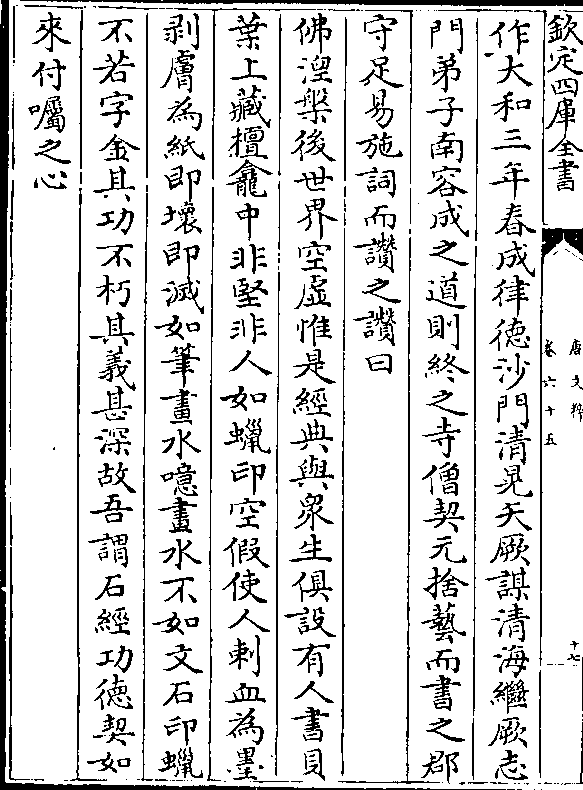 欽定四庫全書
唐文粹
卷六十五
十七
作大和三年春成律徳沙門清晃矢厥謀清海繼厥志
門弟子南容成之道則終之寺僧契元捨藝而書之郡
守足易施詞而讚之讚曰
佛湼槃後世界空虛惟是經典與衆生俱設有人書貝
葉上藏檀龕中非堅非人如蠟印空假使人刺血為墨
剥膚為紙即壞即滅如筆畫水噫畫水不如文石印蠟
不若字金其功不朽其義甚深故吾謂石經功徳契如
來付囑之心